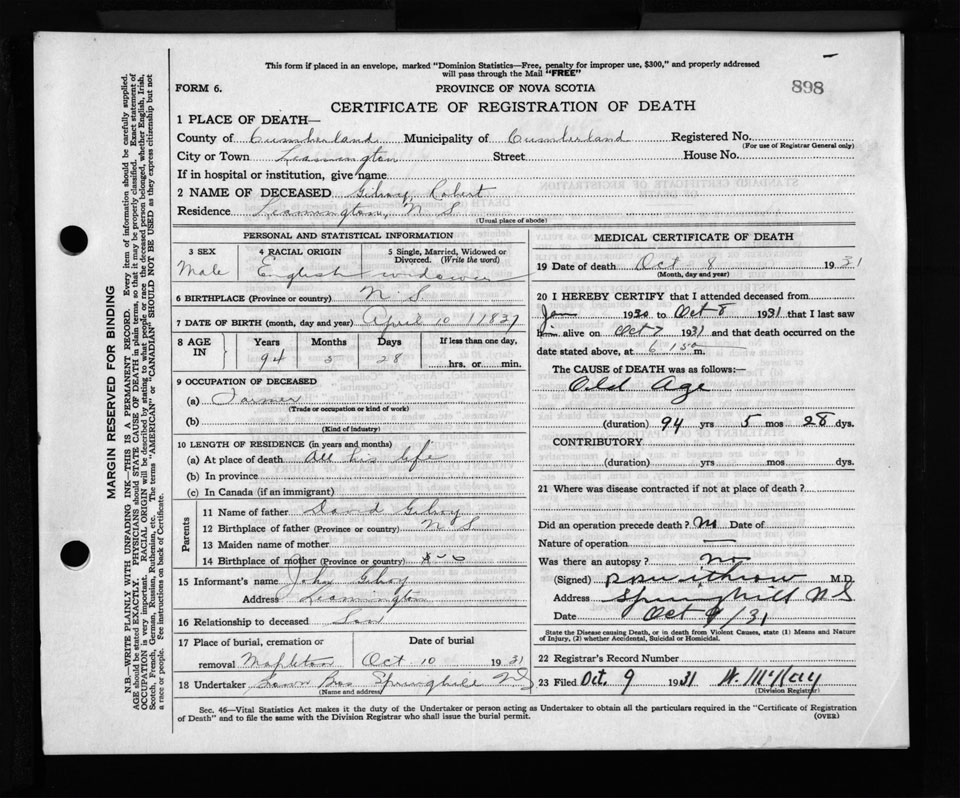 This form if placed in an envelope, marked "Dominion Statistics—Free, penalty for improper use, $300," and properly addressed
will pass through the Mail "FREE"
FORM 6.
PROVINCE OF NOVA SCOTIA
898
CERTIFICATE OF REGISTRATION OF DEATH
1 PLACE OF DEATH—
County of Cumberland Municipality of Cumberland Registered No.
(For use of Registrar General only)
City or Town Leamington Street House No.
If in hospital or institution, give name
2 NAME OF DECEASED Gilroy, Robert
Residence Leamington, N S
(Usual place of abode)
PERSONAL AND STATISTICAL INFORMATION
3 SEX 4 RACIAL ORIGIN 5 Single, Married, Widowed or Divorced. (Write the word)
Male English widower
6 BIRTHPLACE (Province or country) N. S
7 DATE OF BIRTH (month, day and year) April 10 1837
8 AGE IN Years Months Days If less than one day,
94 5 28 hrs. or min.
9 OCCUPATION OF DECEASED
(a) Farmer
(Trade or occupation or kind of work)
(b)
(Kind of industry)
10 LENGTH OF RESIDENCE (in years and months)
(a) At place of death All his life
(b) In province
(c) In Canada (if an immigrant)
Parents
11 Name of father David Gilroy
12 Birthplace of father (Province or country) N S
13 Maiden name of mother
14 Birthplace of mother (Province or country)
15 Informant's name John Gilroy
Address Leamington
16 Relationship to deceased Son
17 Place of burial, cremation or Date of burial
removal Mapleton Oct 10 1931
18 Undertaker Bros Springhill NS
(Name and address)
MEDICAL CERTIFICATE OF DEATH
19 Date of death Oct 8 1931
(Month, day and year)
20 I HEREBY CERTIFY that I attended deceased from
Jan 1930 to Oct 8 1931 that I last saw
him alive on Oct 7 1931 and that death occurred on the
date stated above, at 6 m.
The CAUSE of DEATH was as follows:—
Old Age
(duration) 94 yrs 5 mos 28 dys.
CONTRIBUTORY
(duration) yrs mos dys.
21 Where was disease contracted if not at place of death?
Did an operation precede death? No Date of
Nature of operation —
Was there an autopsy? no
(Signed) M.D.
Address Springhill N S
Date Oct 9/31
State the Disease causing Death, or in death from Violent Causes, state (1) Means and Nature
of Injury, (2) whether Accidental, Suicidal or Homicidal.
22 Registrar's Record Number
23 Filed Oct. 9 1931
(Division Registrar)
Sec. 46—Vital Statistics Act makes it the duty of the Undertaker or person acting as Undertaker to obtain all the particulars required in the "Certificate of Registration
of Death" and to file the same with the Division Registrar who shall issue the burial permit.
(OVER)
MARGIN RESERVED FOR BINDING
N.B.—WRITE PLAINLY WITH UNFADING INK—THIS IS A PERMANENT RECORD. Every item of information should be carefully supplied.
AGE should be stated EXACTLY. PHYSICIANS should STATE CAUSE OF DEATH in plain terms, so that it may be properly classified. Exact statement of
OCCUPATION is very important. RACIAL ORIGIN will be described by stating to what people or race the deceased person belonged, whether English, Irish,
Scotch, French, German, Russian, Ruthenian, etc. The terms "AMERICAN" or "CANADIAN" SHOULD NOT BE USED as they express citizenship but not
a race or people. See instructions on back of Certificate.